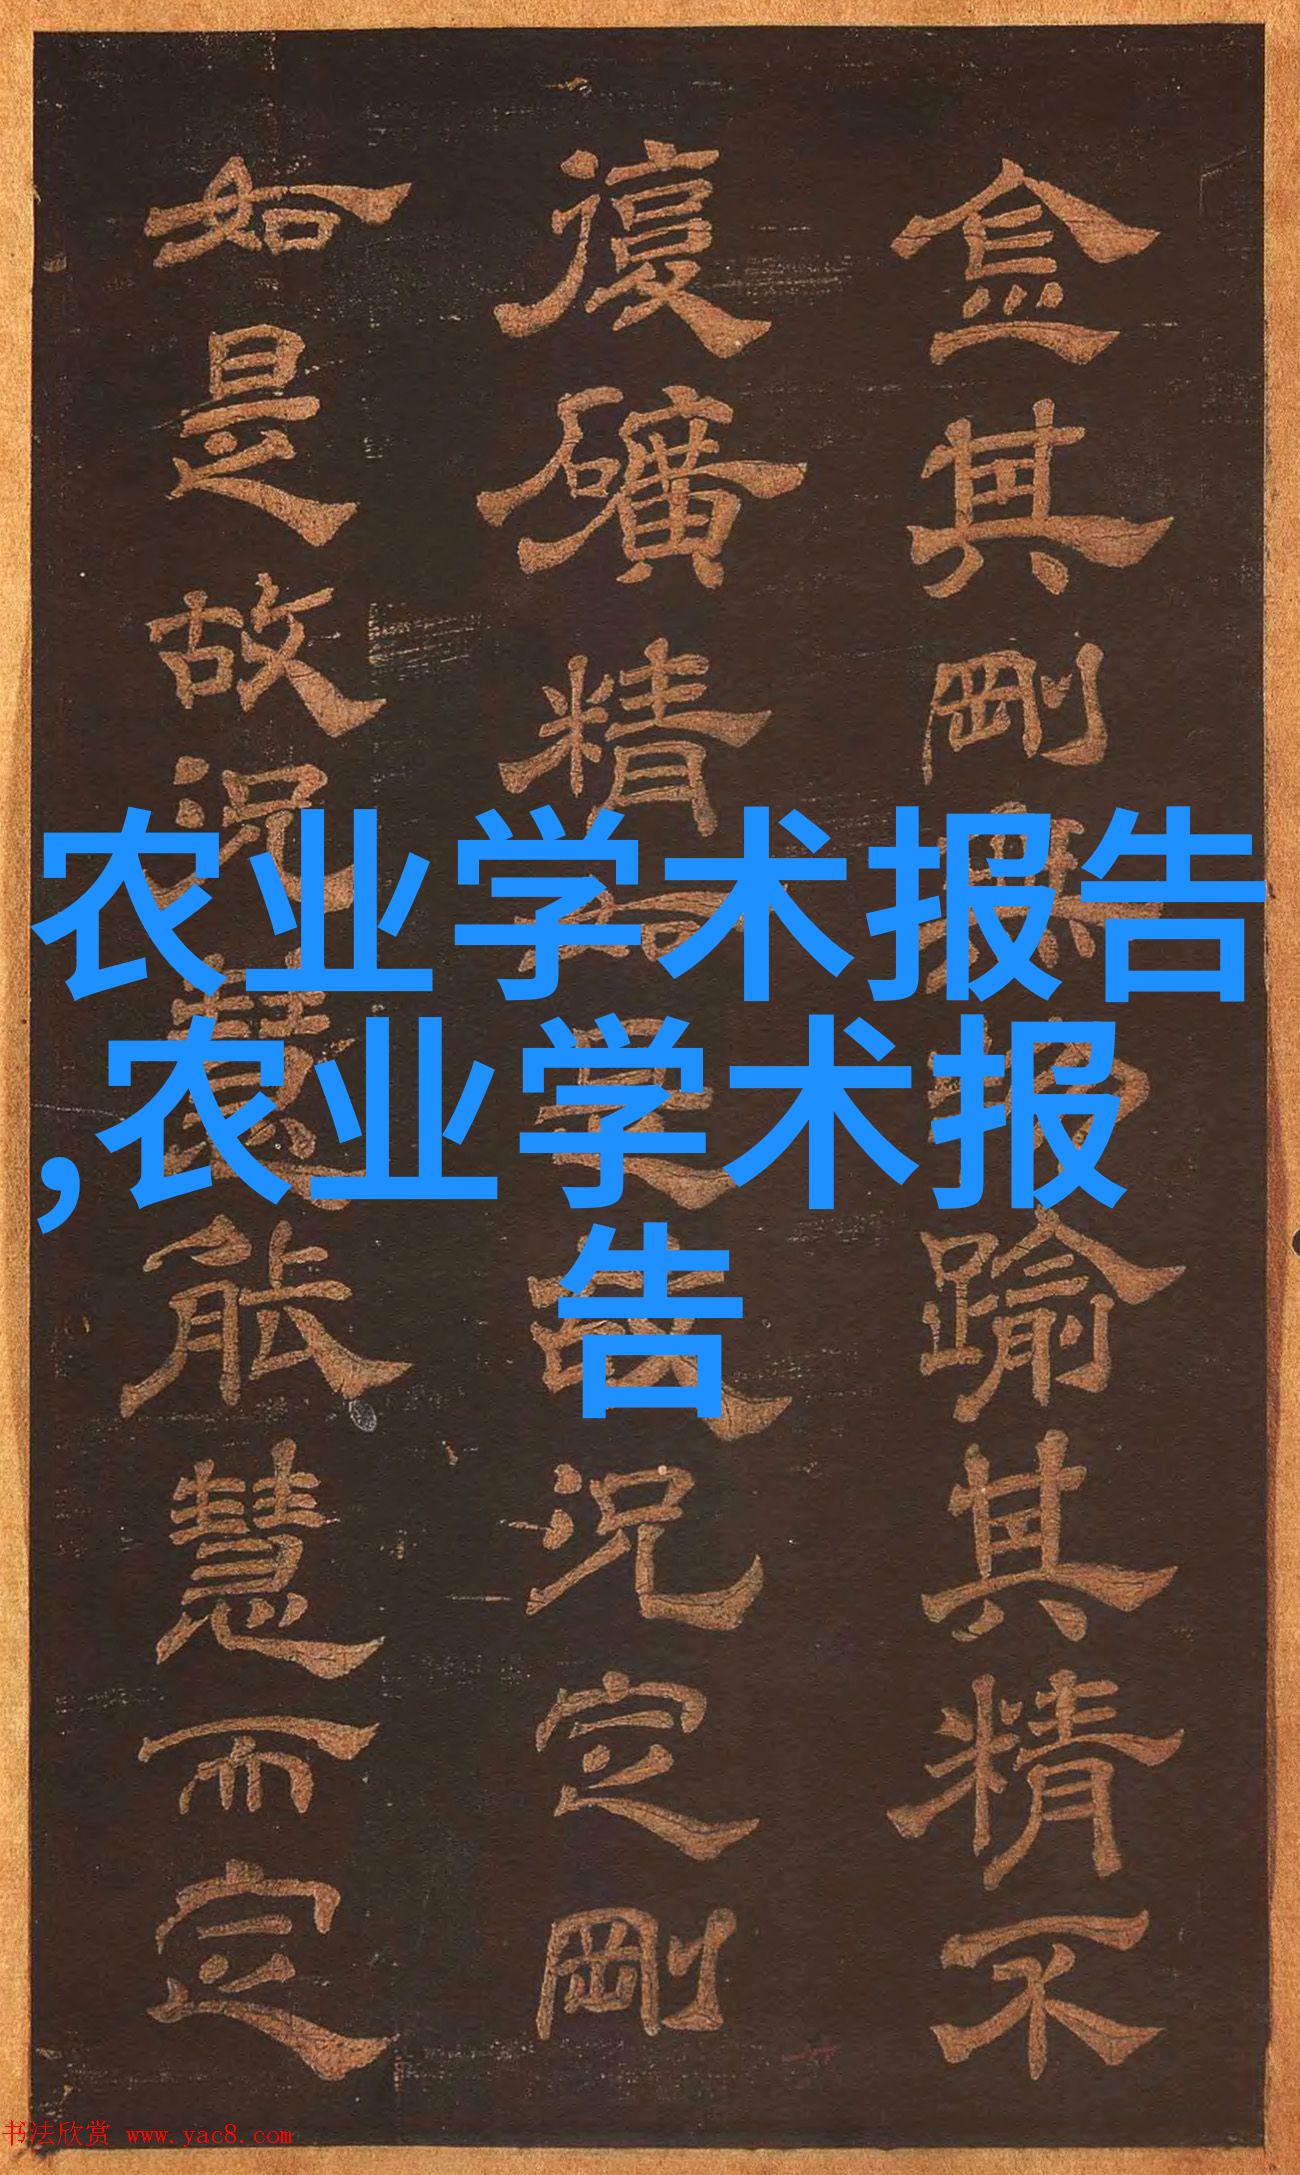 金其剛無踰其精不
復礦精如是故況定剛
如是故況慧能慧而定
农业学术报告
,农业学术报
告
书法欣赏 www.yac8.com